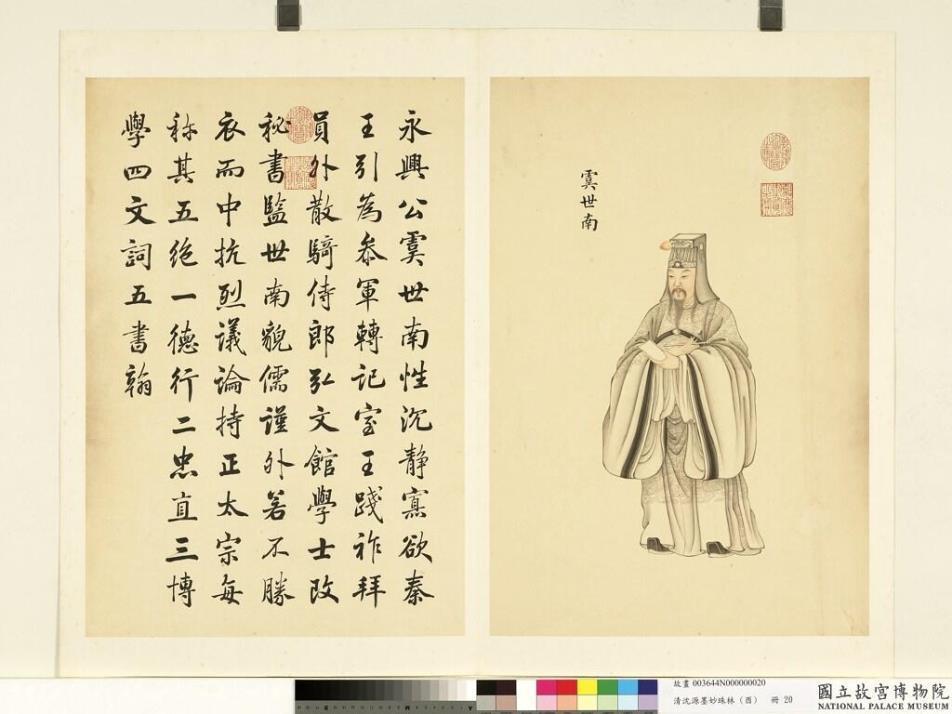 虞世南
永興公虞世南性沉静寡欲秦
王引為叅軍轉記室王踐祚拜
員外散騎侍郎弘文館學士改
秘書監世南貌儒謹外若不勝
衣而中抗烈議論持正太宗每
称其五絶一德行二忠直三博
學四文詞五書翰
故畫 003644N00000020
清沈源墨妙珠林（酉） 冊 20
國立故宮博物院
NATIONAL PALACE MUSEUM